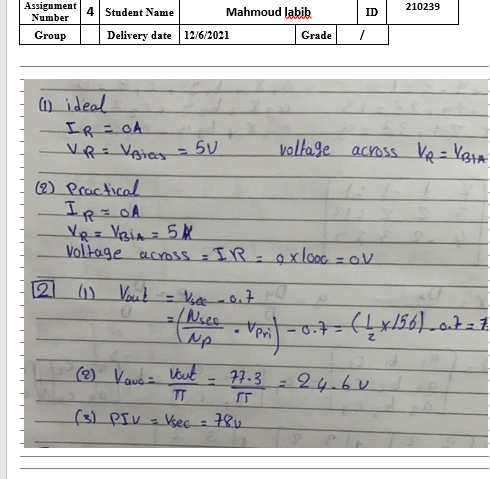 Assignment Number 4 Student Name Mahmoud labib ID 210239
Group Delivery date 12/6/2021 Grade /
(1) ideal
I_R = 0A
V_R = V_Bias = 5V voltage across V_R = V_BIA
(2) Practical
I_R = 0A
V_R = V_BiA = 5V
Voltage across = IR = 0 x 1000 = 0V
[2] (1) Vout = Vsec - 0.7
= (Nsec/Np · Vpri) - 0.7 = (1/2 x 156) - 0.7 = 7
(2) Vavg = Vout/π = 77.3/π = 24.6 v
(3) PIV = Vsec = 78v